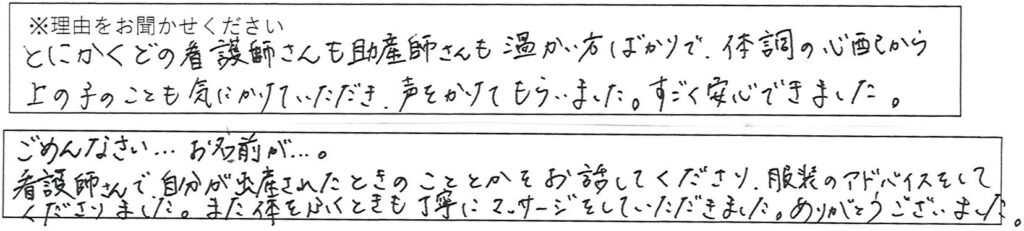 ※理由をお聞かせください
とにかくどの看護師さんも助産師さんも温かい方ばかりで、体調の心配から
上の子のことも気にかけていただき、声をかけてもらいました。すごく安心できました。
ごめんなさい…お名前が…。
看護師さんで、自分が出産されたときのこととかをお話してくださり、服装のアドバイスをして
くださりました。また体をふくときも丁寧にマッサージをしていただきました。ありがとうございました。